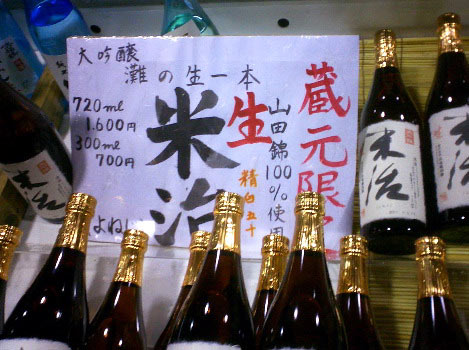 蔵元限
山田錦100%使用
生
精白五十
米治
よね
灘の生一本
大吟醸
720ml
1,600円
300ml
700円
米治
米治
米治